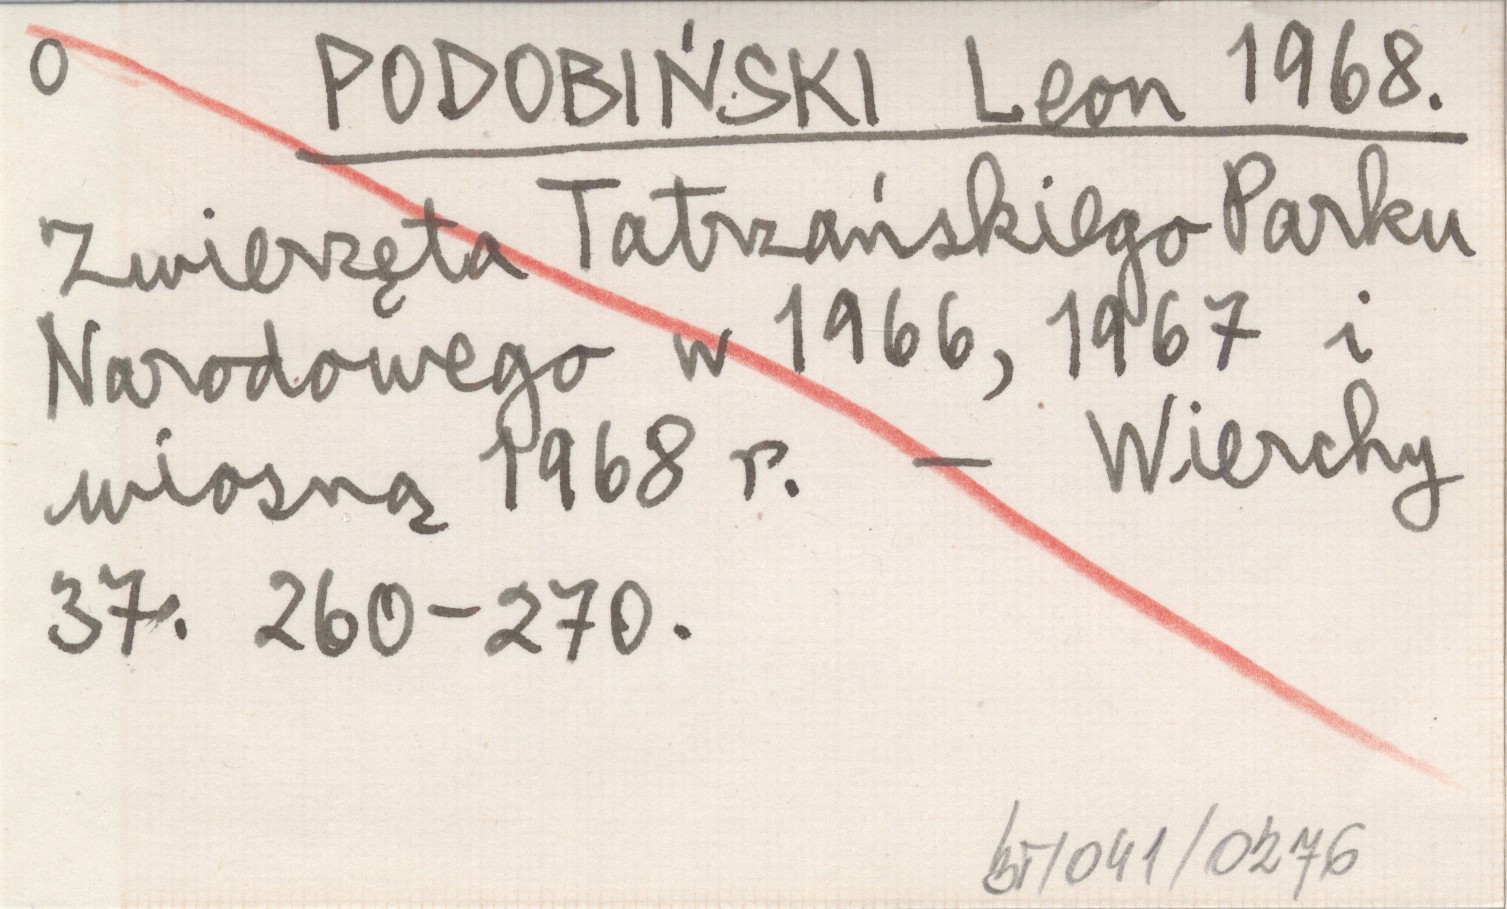 O PODOBIŃSKI Leon 1968.
Zwierzęta Tatrzańskiego Parku
Narodowego w 1966, 1967 i
wiosną 1968 r. – Wierchy
37. 260-270.
/041/0276